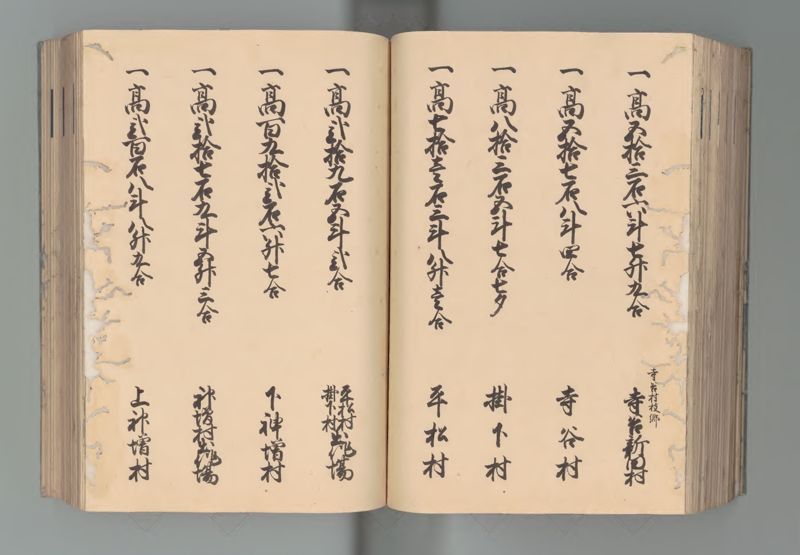 一高五拾三石六斗七升九合
寺谷村枝郷
寺谷新田村
一高五拾七石八斗四合
寺谷村
一高八拾三石五斗七合七夕
掛下村
一高七拾壱石三斗八升壱合
平松村
一高弐拾九石五斗弐合
平松村
掛下村
一高百九拾弐石六升七合
下神増村
一高弐拾七石九斗五升三合
神増村
一高弐百石八斗八升九合
上神増村